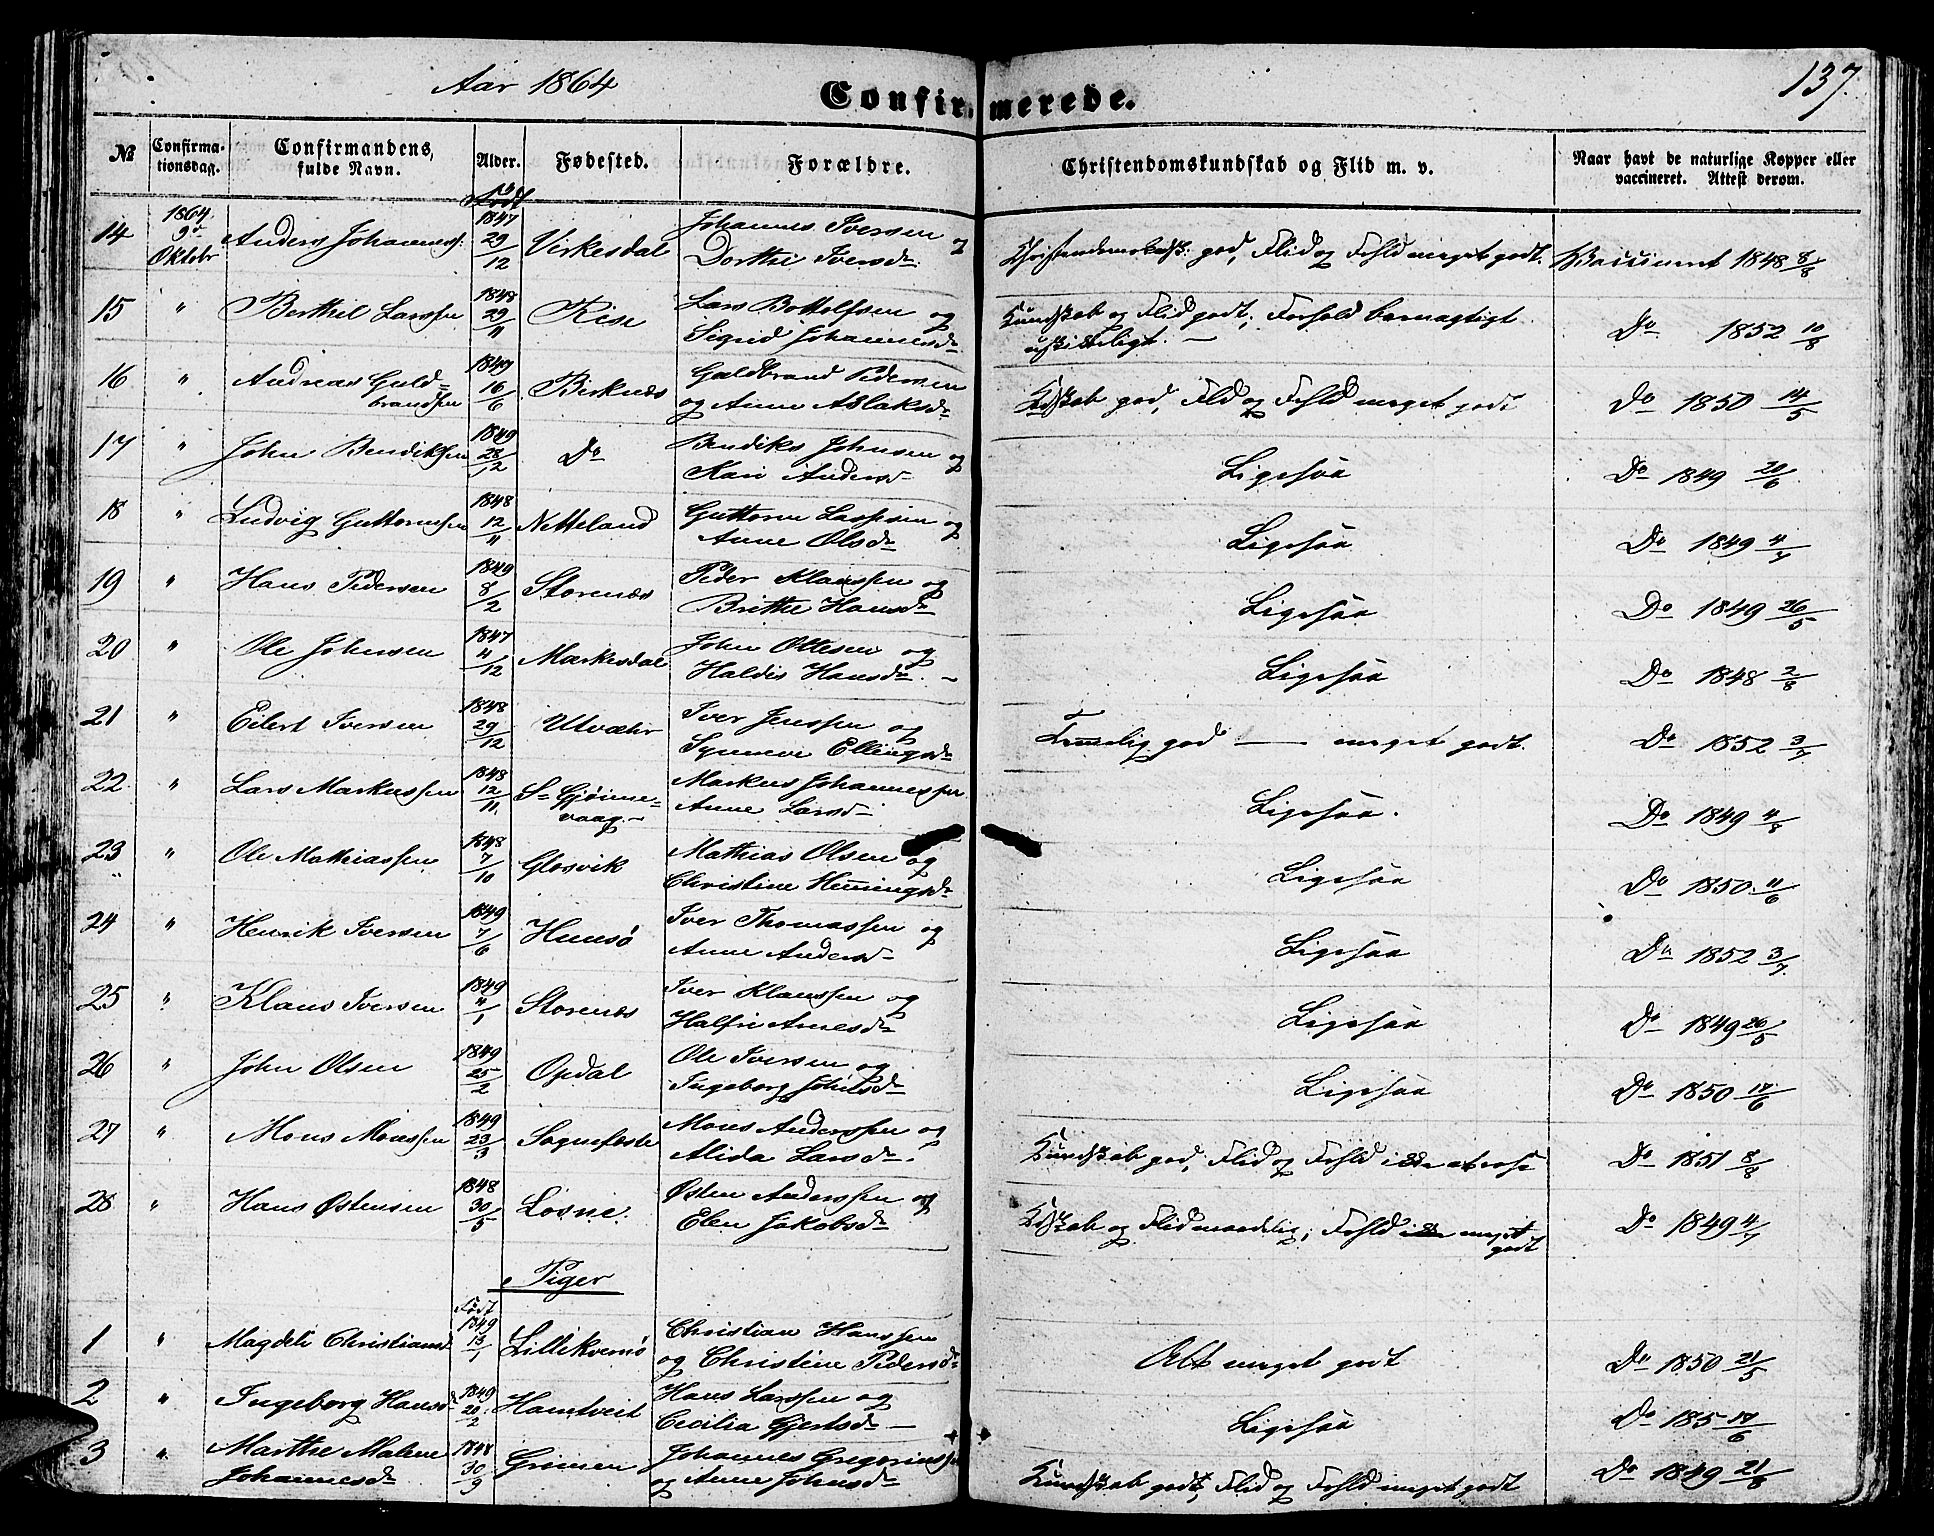 Aar 1864
Confirmerede.
137.
№ Confirmationsdag. Confirmandens fulde Navn. Alder. Fødested. Forældre. Christendomskundskab og Flid m. v. Naar havt de naturlige Kopper eller vaccineret. Attest derom.
14 1864 9de Oktobr Anders Johanness. Født 1847 29/12 Virkesdal Johannes Iversen Dorthe Iversd. god, Flid og Fhld meget godt. Vaccineret 1848 8/8
15 " Berthil Larssen 1848 29/11 Rise Lars Bottolfsen og Sigrid Johannesd. Kundskab og Flid godt; Forhold
Do 1852 10/8
16 " Andreas Guldbrandsen 1849 16/6 Birknæs Guldbrand Pedersen og Anne Aslaksd. Kdskab god, Flid og Fhld meget godt Do 1850 14/5
17 " John Bendiksen 1849 28/12 Do Bendiks Johnsen og Kari Andersd. Ligesaa Do 1849 20/6
18 " Ludvig Guttormsen 1848 12/11 Netteland Guttorm Lassesen og Anne Olsd. Ligesaa Do 1849 4/7
19 " Hans Pedersen 1849 8/2 Storenæs Peder Klaussen og Brithe Hansd. Ligesaa Do 1849 26/5
20 " Ole Johnsen 1847 4/12 Markesdal John Ottesen og Haldis Hansd. Ligesaa Do 1848 2/8
21 " Eilert Iversen 1848 29/12 Utvæhr Iver Jenssen og Synneve Ellingsd. Temmelig god — meget godt. Do 1852 3/7
22 " Lars Markussen 1848 12/11 S. Gjønnevaag Markus Johannessen Anne Larsd. Ligesaa. Do 1849 4/8
23 " Ole Mathiassen 1848 7/10 Glosvik Mathias Olsen og Christine Henningsd. Ligesaa Do 1850 11/6
24 " Henrik Iversen 1849 7/6 Hunsø Iver Thomassen og Anne Andersd. Ligesaa Do 1852 3/7
25 " Klaus Iversen 1849 4/1 Storenæs Iver Klaussen og Halfri Arnesd. Ligesaa Do 1849 26/5
26 " John Olsen 1849 25/2 Opdal Ole Iversen og Ingeborg Johnsd. Ligesaa Do 1850 18/6
27 " Mons Monssen 1849 23/3 Sognefæste Mons Anderssen og Alida Larsd. Kundskab god, Flid og Fhld Do 1851 8/8
28 " Hans Østensen 1848 30/5 Losne. Østen Anderssen og Elen Jakobsd. Kdskab og Flid maadelig; Fhld meget godt Do 1849 4/7
Piger
1 " Magdeli Christiansd. Født 1849 13/1 Lillikvernø Christian Hanssen og Christine Pedersd. Alt meget godt Do 1850 21/5
2 " Ingeborg Hansd. 1849 20/2 Hantveit Hans Larssen og Cecilia Gjertsd. Ligesaa Do 185 18/6
3 " Marthe Malene Johannesd. 1848 30/9 Grinen Johannes Gregoriussen og Anne Johnsd. Kundskab godt, Flid og Fhld meget godt Do 1849 21/8